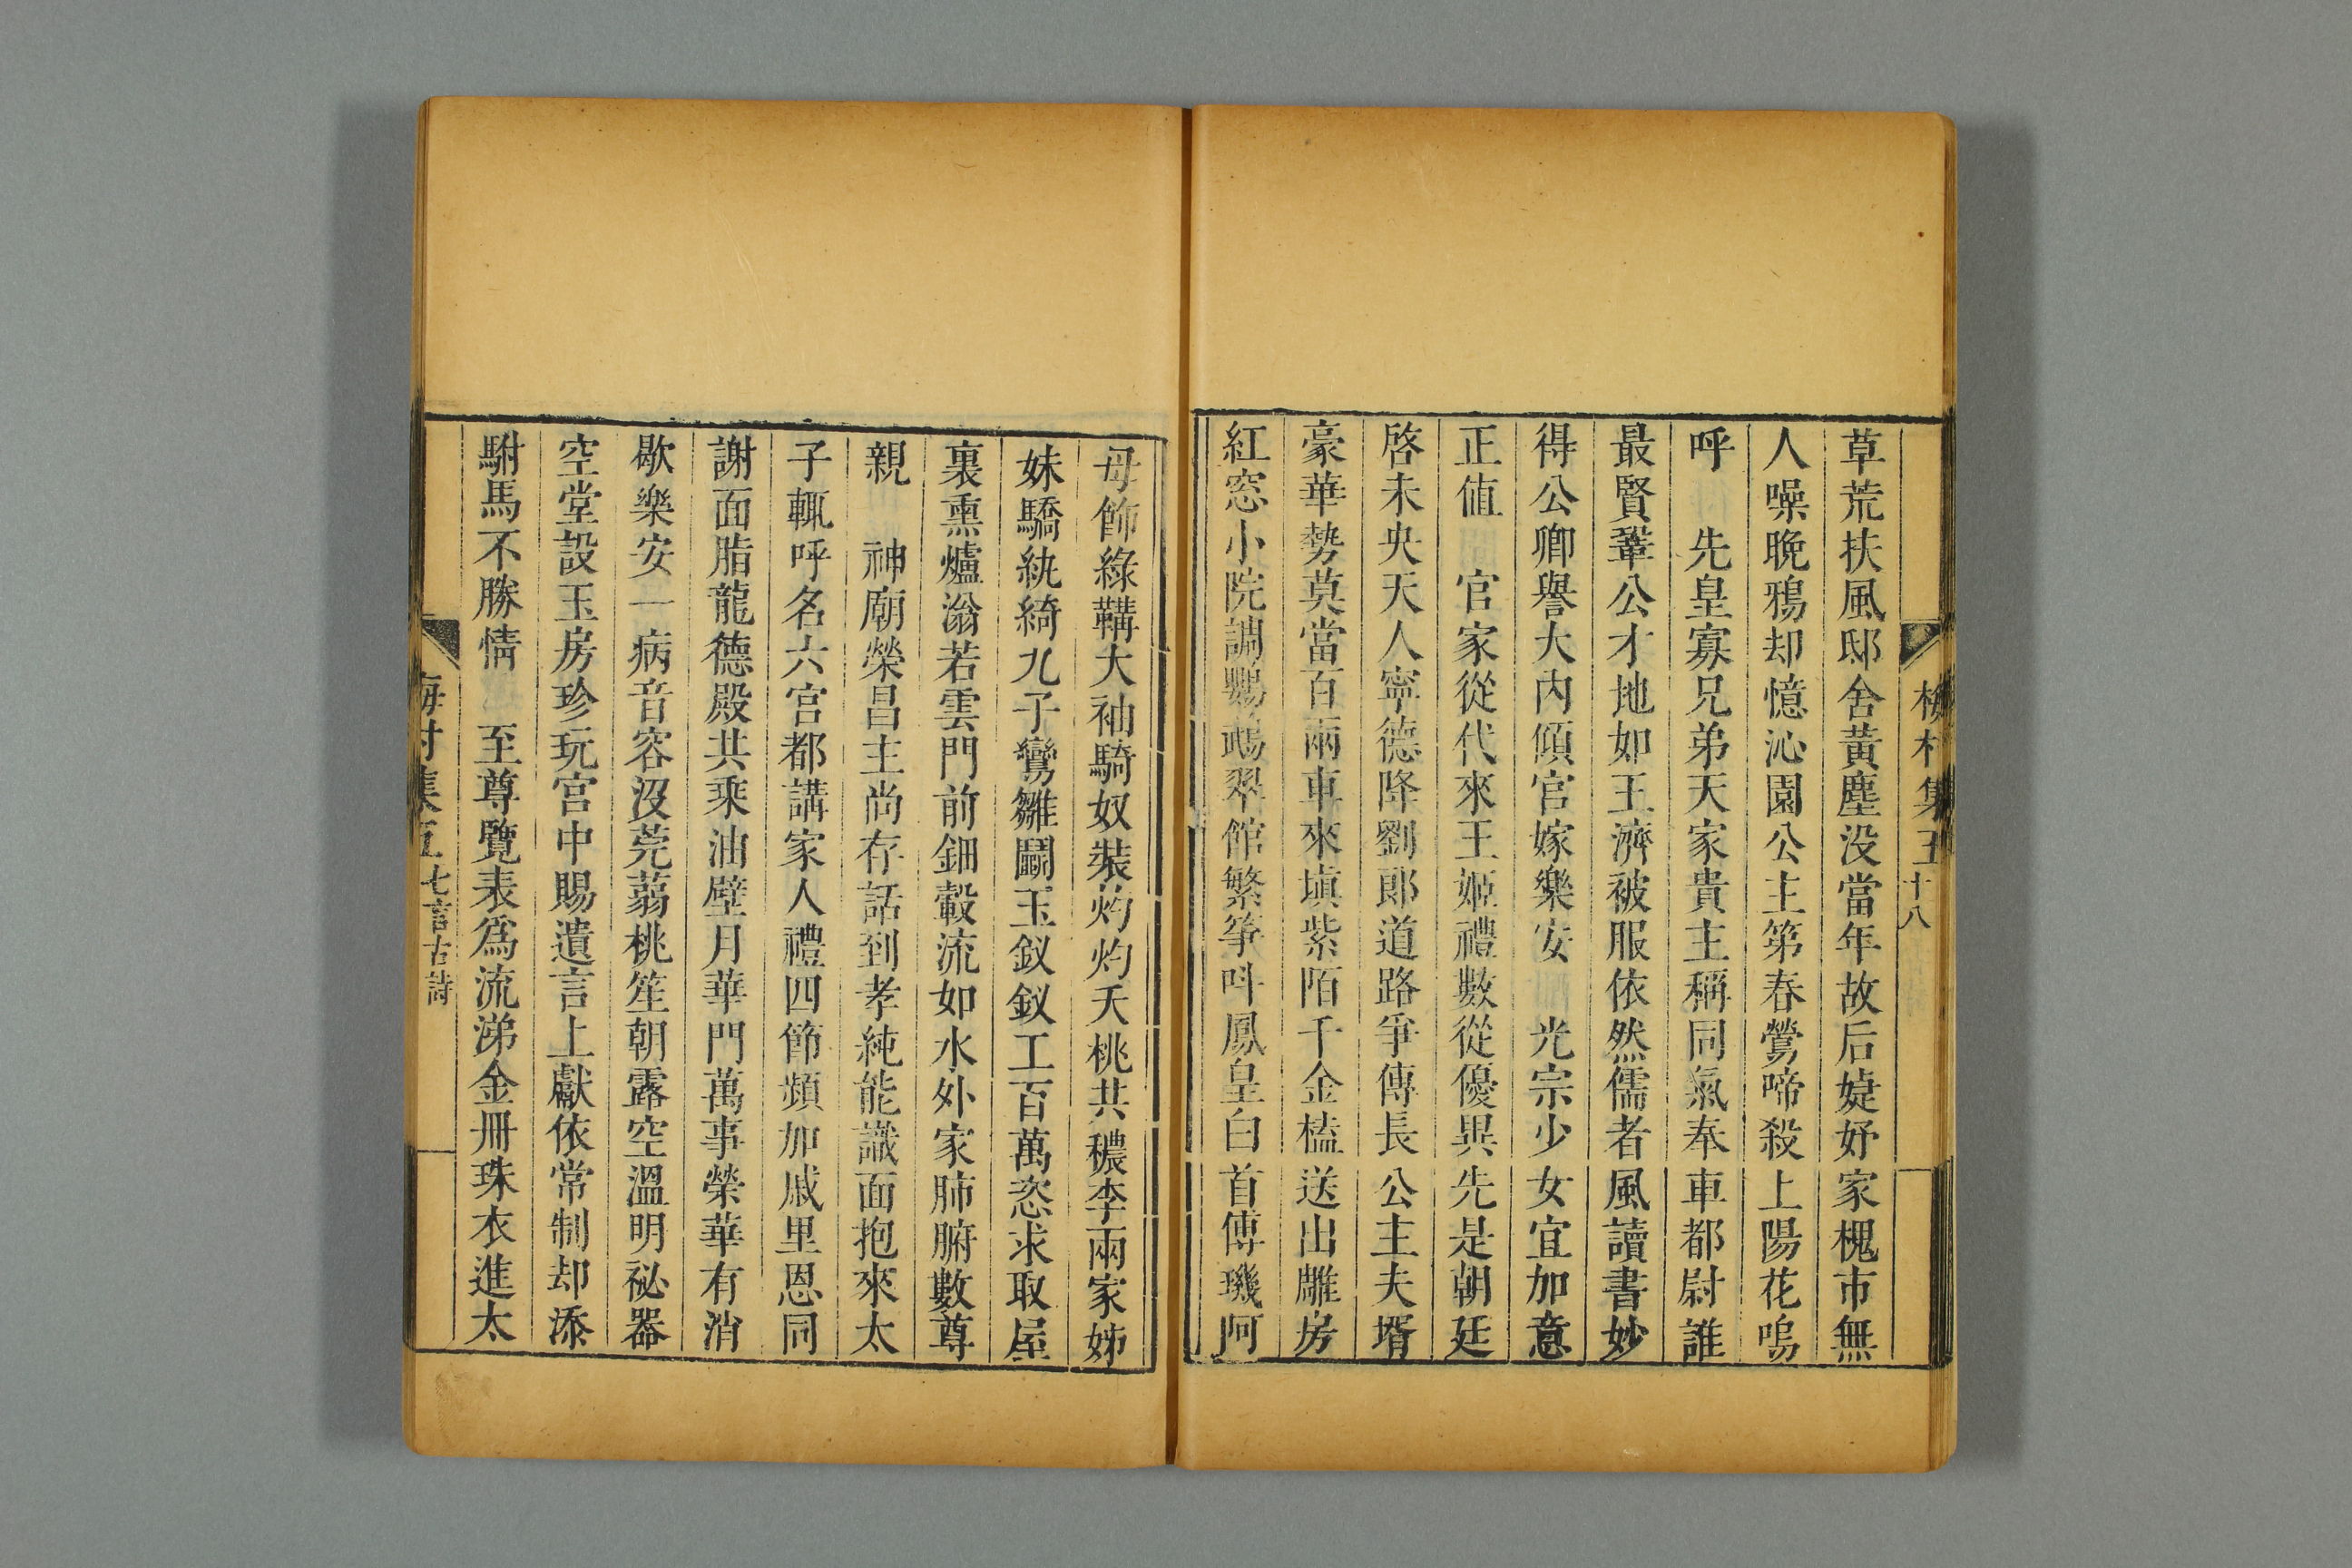 梅村集五 十八
草荒扶風邸舍黃塵没當年故后婕妤家槐市無
人噪晚鴉却憶沁園公主第春鶯啼殺上陽花嗚
呼 先皇寡兄弟天家貴主稱同氣奉車都尉誰
最賢鞏公才地如王濟被服依然儒者風讀書妙
得公卿譽大內傾宮嫁樂安 光宗少女宜加意
正值 官家從代來王姬禮數從優異先是朝廷
啓未央天人寧德降劉郎道路爭傳長公主夫壻
豪華勢莫當百兩車來塡紫陌千金榼送出雕房
紅窓小院調鸚鵡翠館繁筝呌鳳皇白首傅璣阿
母飾綠鞲大袖騎奴裝灼灼夭桃共穠李兩家姊
妹驕紈綺九子鸞雛鬭玉釵釵工百萬恣求取屋
裏熏爐滃若雲門前鈿轂流如水外家肺腑數尊
親 神廟榮昌主尚存話到孝純能識面抱來太
子輒呼名六宫都講家人禮四節頻加戚里恩同
謝面脂龍德殿共乘油壁月華門萬事榮華有消
歇樂安一病音容沒莞蒻桃笙朝露空溫明祕器
空堂設玉房珍玩宮中賜遺言上獻依常制却添
駙馬不勝情 至尊覽表爲流涕金冊珠衣進太
梅村集五 七言古詩